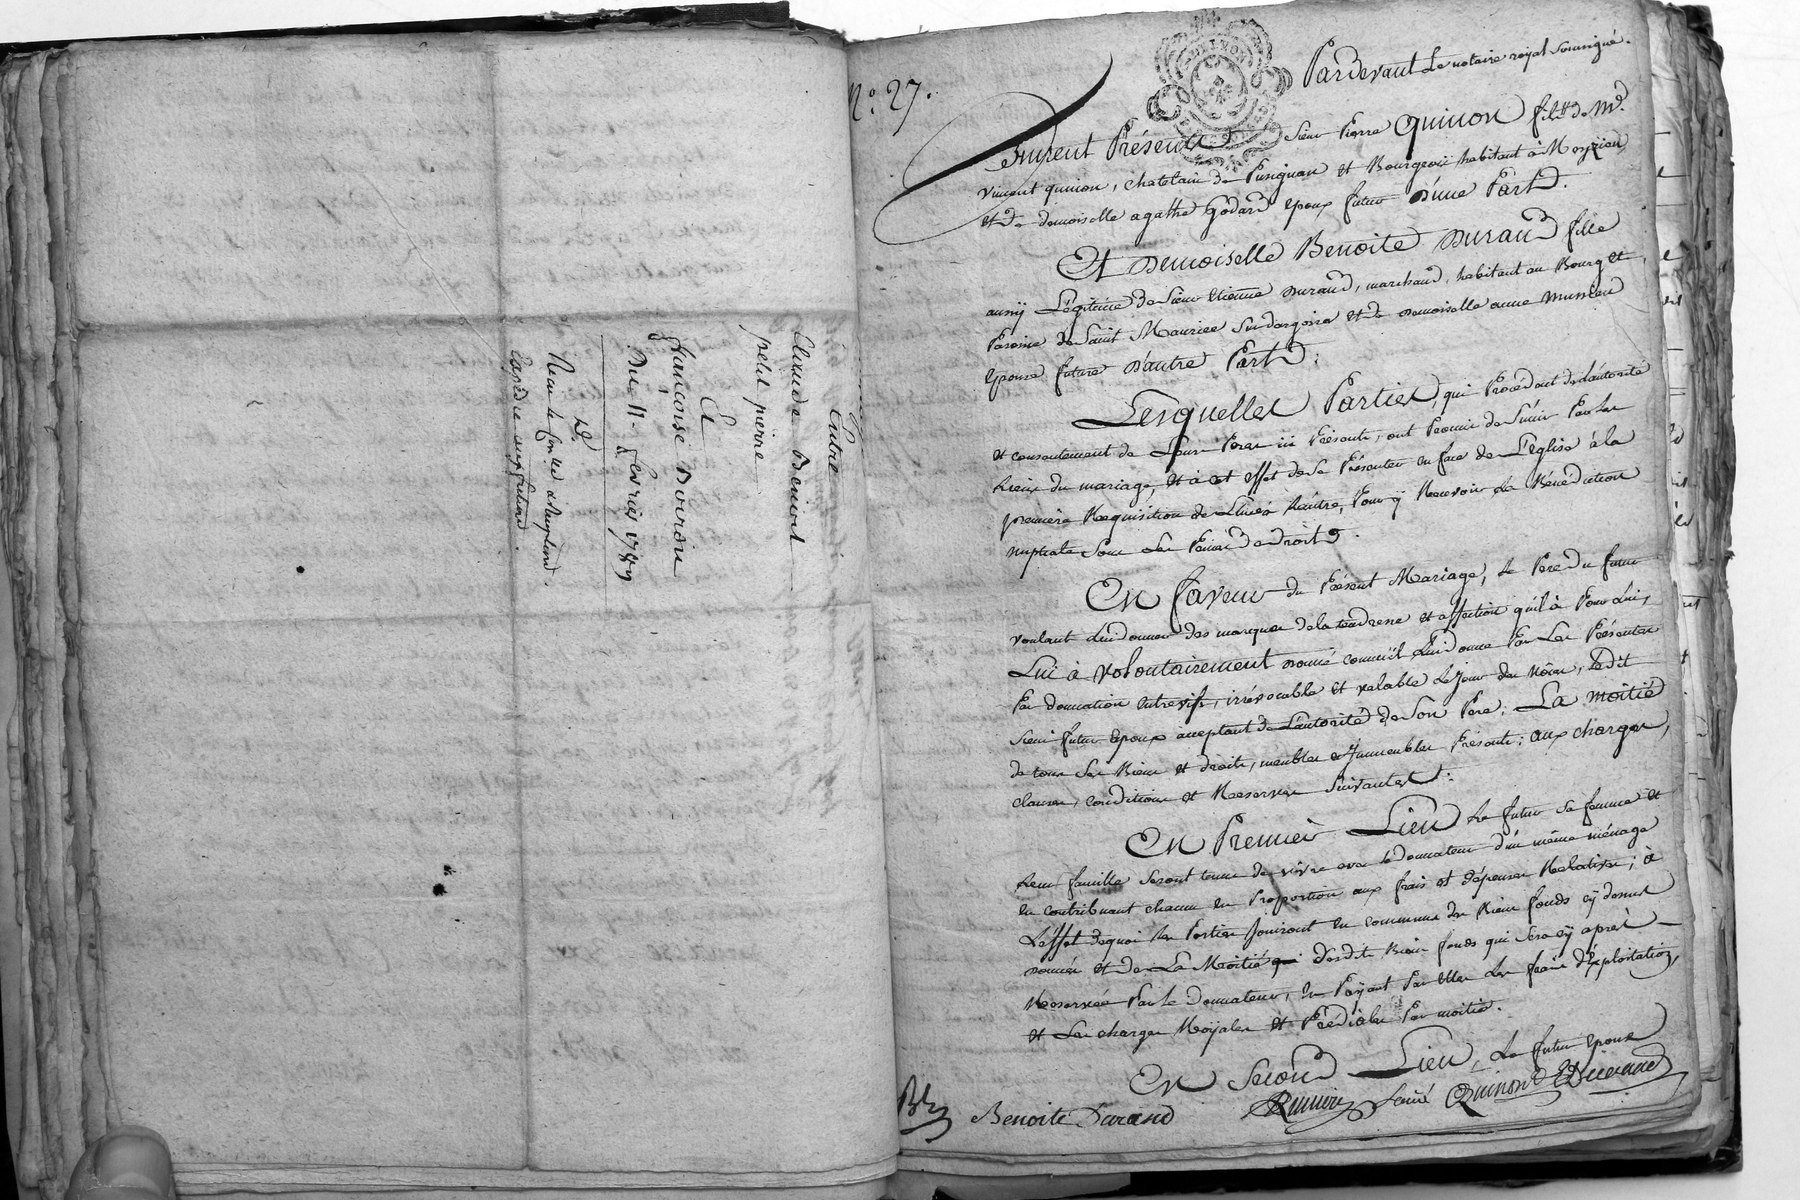 Entre
Claude Benoit
petit pierre
Et
françoise Bourdin
Du 11 fevrier 1789
N.° 27.
Pardevant Le notaire royal soussigné.
furent Présents Sieur Pierre Quinon fils de Md.
vincent quinon, chatelain de Pusignan et Bourgeois habitant à Meyzieu,
et de demoiselle agathe Godard epoux futur D'une Part.
Et Demoiselle Benoite Durand fille
aussy Légitime de Sieur Etienne Durand, marchand, habitant au Bourg et
Paroisse de Saint Maurice Sur dargoire et de demoiselle anne mussieu
Epouse future D'autre Part.
Lesquelles Parties, qui Procédant de L'autorité
et consentement de Leurs Peres ici Présents, ont Promis de S'unir Par les
Liens du mariage, et à cet effet de Se Présenter en face de L'église à la
première Requisition de L'un à L'autre, Pour y Recevoir La Bénédiction
nuptiale Sous Les Peines de droit.
En faveur du Présent Mariage, Le Pere du futur
voulant Lui donner des marques de la tendresse et affection qu'il à Pour Lui,
Lui à volontairement donné comme il Lui donne Par Les Présentes
Par donnation entrevifs, irrévocable et valable Le Jour des Nôces, Ledit
Sieur futur Epoux acceptant de L'autorité de Son Pere; La moitié
de tous Ses Biens et droits, meubles et Immeubles Présents; aux charges,
clauses, conditions et Reserves Suivantes:
En Premier Lieu Le futur Sa femme et
Leur famille Seront tenus de vivre avec le Donnateur d'un même ménage
en contribuant chacun en Proportion aux frais et dépenses Relatives; à
L'effet dequoi Les Parties Jouiront en commun des Biens fonds cy dessus
donnés et de La Moitié desdits Biens fonds qui Sera cy après
Reservée Par Le Donnateur, en Payant Par Elles Les frais d'Exploitation,
et Les charges Royales et Prédiales Par moitié.
En Second Lieu, Le futur Epoux
Benoite Durand Quinon Durand